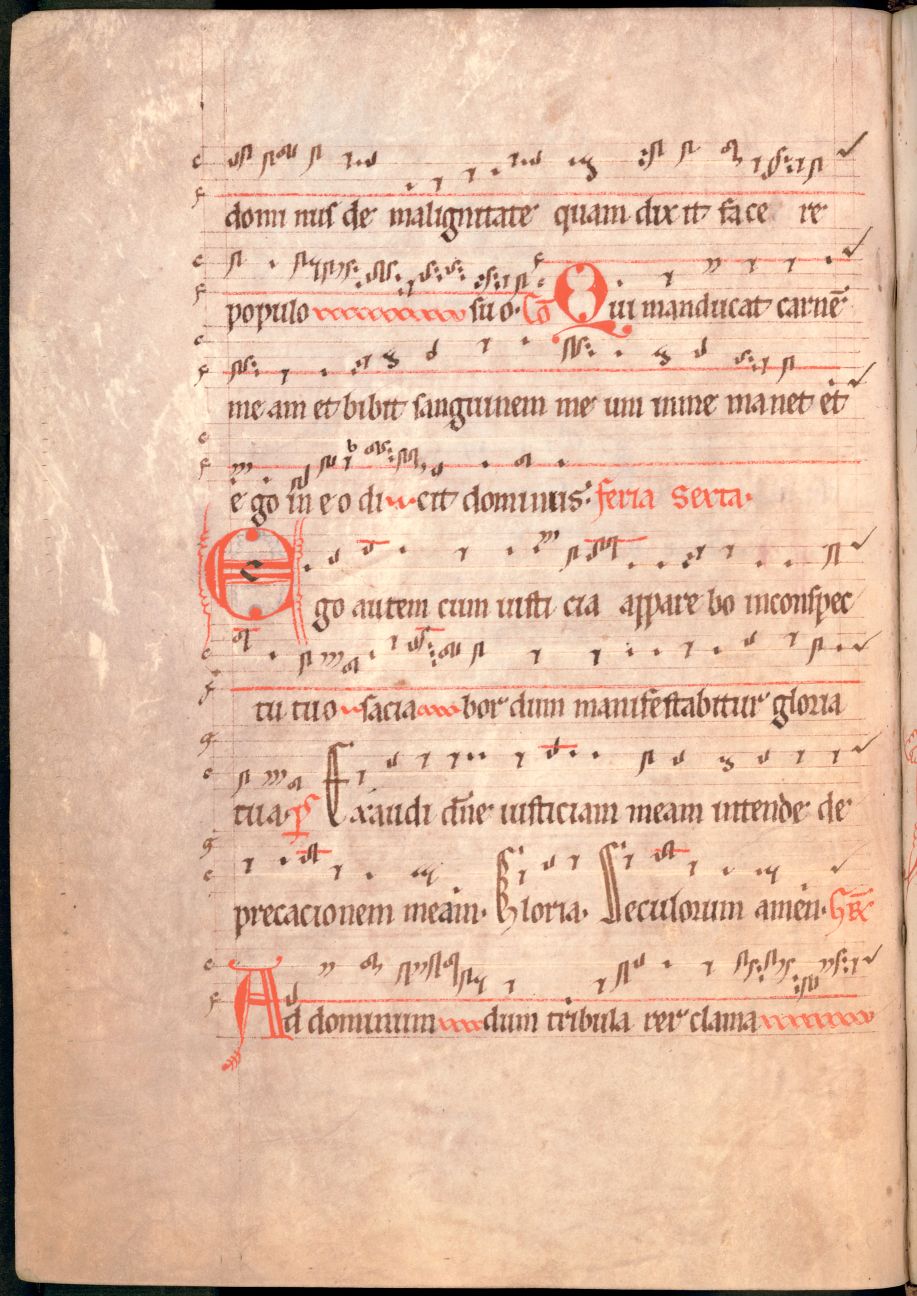 dominus de malignitate quam dixit facere
populo suo. Co Qui manducat carnē
meam et bibit sanguinem meum in me manet et
ego in eo dicit dominus. feria sexta.
Ego autem cum iusticia apparebo in conspec
tu tuo saciabor dum manifestabitur gloria
tua. ps Exaudi dn̄e iusticiam meam intende de
precacionem meam. Gloria. Seculorum amen. GR̄
Ad dominum dum tribularer clama